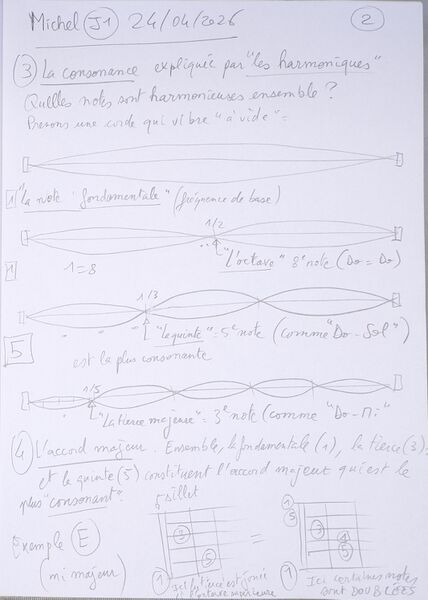 Michel J1 24/04/2026 2
3 La consonance expliquée par "les harmoniques"
Quelles notes sont harmonieuses ensemble ?
Prenons une corde qui vibre "à vide" =
1 "la note fondamentale" (fréquence de base)
1/2
"L'octave" 8e note (Do = Do)
1 1=8
1/3
"la quinte" = 5e note (comme "Do - Sol")
5 est la plus consonante
1/5
"La tierce majeure" = 3e note (comme "Do - Mi"
4 L'accord majeur. Ensemble, la fondamentale (1), la tierce (3)
et la quinte (5) constituent l'accord majeur qui est le
plus "consonant".
sillet
Exemple E
(mi majeur)
3 5 = 1 5 3 1 5
1 Ici la tierce est jouée
à l'octave supérieure
1 Ici certaines notes
sont DOUBLÉES